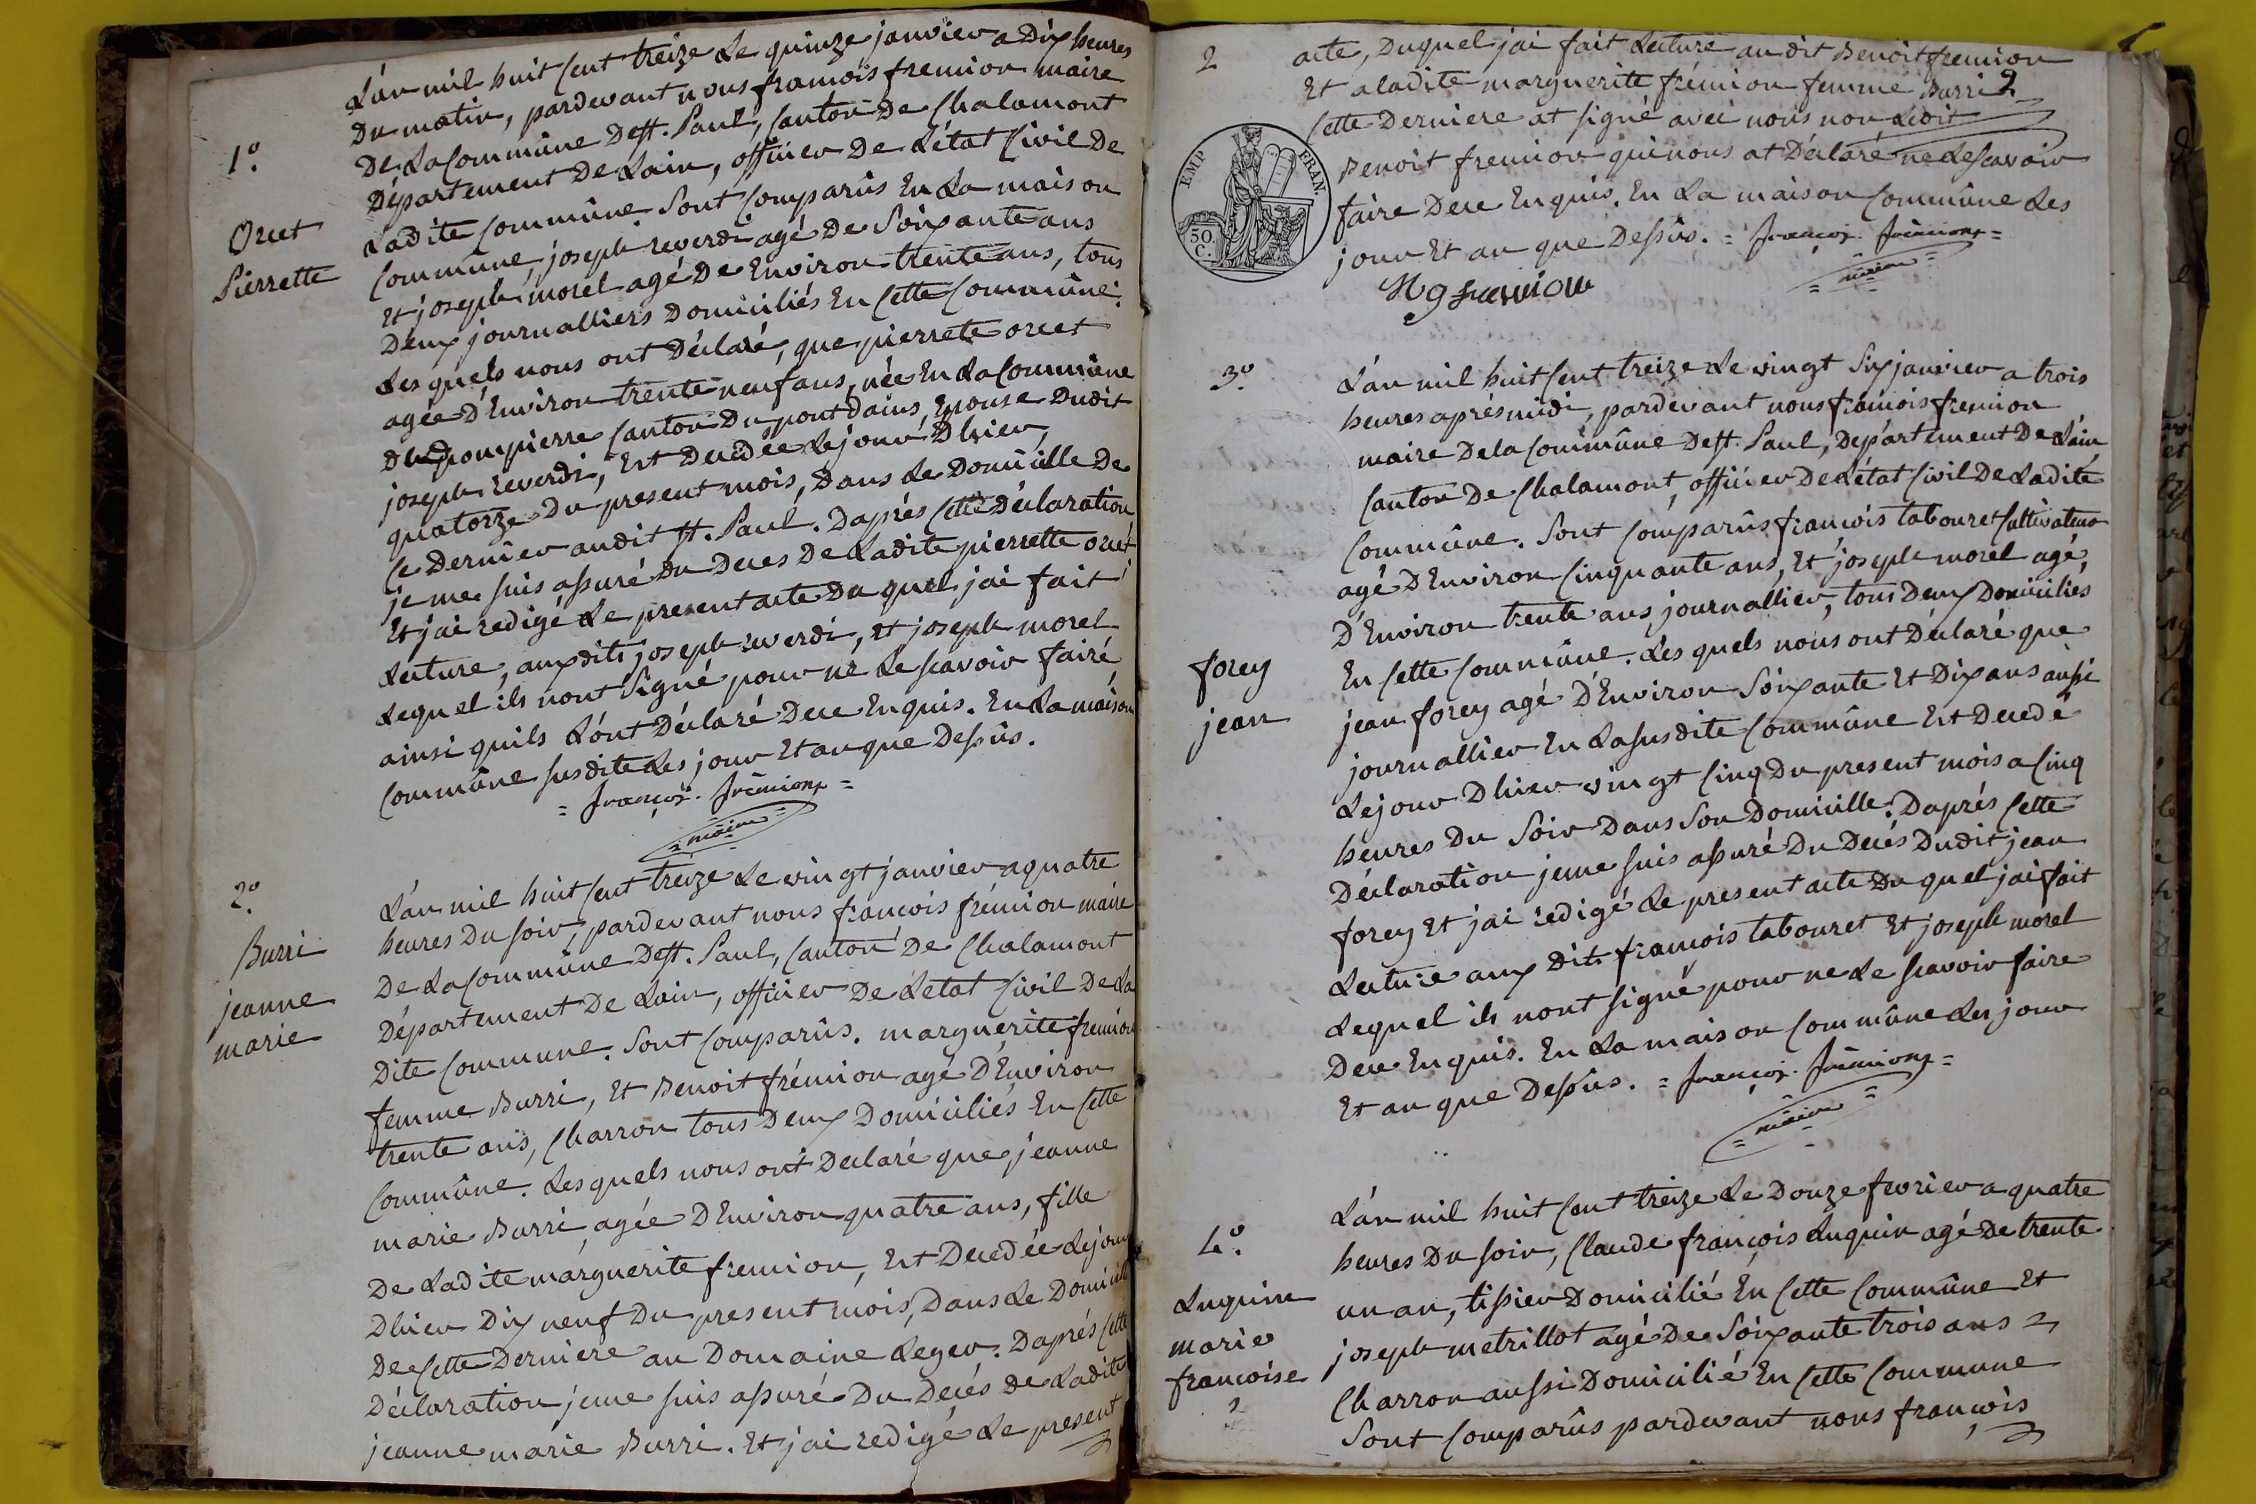 1º.
Orcet
Pierrette
L'an mil huit Cent treize Le quinze janvier a Dix heures
Du matin, pardevant nous francois fremion maire
De La Commûne De St. Paul, Canton De Chalamont
Département De Lain, officier De L'état Civil De
Ladite Commûne Sont Comparûs En La maison
Commûne, joseph reverdi agé De Soixante ans
Et joseph morel agé De Environ trente ans, tous
Deux journalliers Domiciliés En Cette Commûne.
Les quels nous ont Déclaré, que pierrete orcet
agée D'Environ trente neuf ans, née En La Commûne
De Dompierre Canton Du pont Dains, Epouse Dudit
joseph reverdi, Est Decedée Le jour D'hier,
quatorze Du present mois, Dans Le Domicille De
Ce Dernier audit St. Paul. Daprés Cette Déclaration
je me suis assuré Du Deces De Ladite pierrette orcet
Et jai redigé Le present acte Du quel jai fait
Lecture, aux dits joseph reverdi, Et joseph morel
Lequel ils nont Signé pour ne Le scavoir fairé
ainsi quils L'ont Déclaré Dece Enquis. En La maison
Commûne susdite Les jour Et an que Dessûs.
= françois. frêmion =
= maire =
2º.
Burri
jeanne
marie
L'an mil huit Cent treize Le vingt janvier a quatre
heures Du soir, pardevant nous francois frémion maire
De La Commûne De St. Paul, Canton De Chalamont
Département De Lain, officier De L'état Civil De La
Dite Commune. Sont Comparûs. marguerite fremion
femme Burri, Et Benoit frémion agé D'Environ
trente ans, Charron tous Deux Domiciliés En Cette
Commûne. Les quels nous ont Declaré que jeanne
marie Burri agée D'Environ quatre ans, fille
De Ladite marguerite fremion, Est Decedée Le jour
Dhier Dix neuf Du present mois, Dans Le Domicil
De Cette Derniere au Domaine Leger. Daprés Cette
Déclaration je me suis assuré Du Decés De Ladite
jeanne marie Burri. Et j'ai redigé Le present
2
acte, Duquel jai fait Lecture au dit Benoit fremion
Et a ladite marguerite frémion femme Burri
2
Cette Derniere at signé avec nous non Ledit
Benoit fremion qui nous at Déclaré ne Le scavoir
faire Dece Enquis. En La maison Commûne Les
jour Et an que Dessûs. = françois. frêmion =
= maire =
Mg fremion
EMP. FRAN.
50.
C.
3º.
forey
jean
L'an mil huit Cent treize Le vingt Six janvier a trois
heures aprés midi, pardevant nous francois fremion
maire De la Commûne De St. Paul, Département De L'ain
Canton De Chalamont, officier De L'état Civil De Ladite
Commûne. Sont Comparûs francois tabouret Cultivateur
agé D'Environ Cinquante ans, Et joseph morel agé,
D'Environ trente ans journallier, tous Deux Domiciliés
En Cette Commûne. Les quels nous ont Déclaré que
jean forey agé D'Environ Soixante Et Dix ans aussi
journallier En La susdite Commûne Est Decedé
Le jour D'hier vingt Cinq Du present mois a Cinq
heures Du Soir Dans Son Domicille. Daprés Cette
Déclaration je me suis assuré Du Decés Dudit jean
forey Et jai redigé Le present acte Du quel jai fait
Lecture aux Dits francois tabouret Et joseph morel
Lequel ils nont signé pour ne Le scavoir faire
Dece Enquis. En La maison Commûne Les jour
Et an que Dessûs. = françois. frêmion =
= maire =
4º.
Luquin
marie
francoise
L'an mil huit Cent treize Le Douze fevrier a quatre
heures Du soir, Claude françois Luquin agé De trente
un an, tissier Domicilié En Cette Commûne Et
joseph metrillot agé De Soixante trois ans
Charron aussi Domicilié En Cette Commune
Sont Comparûs pardevant nous françois